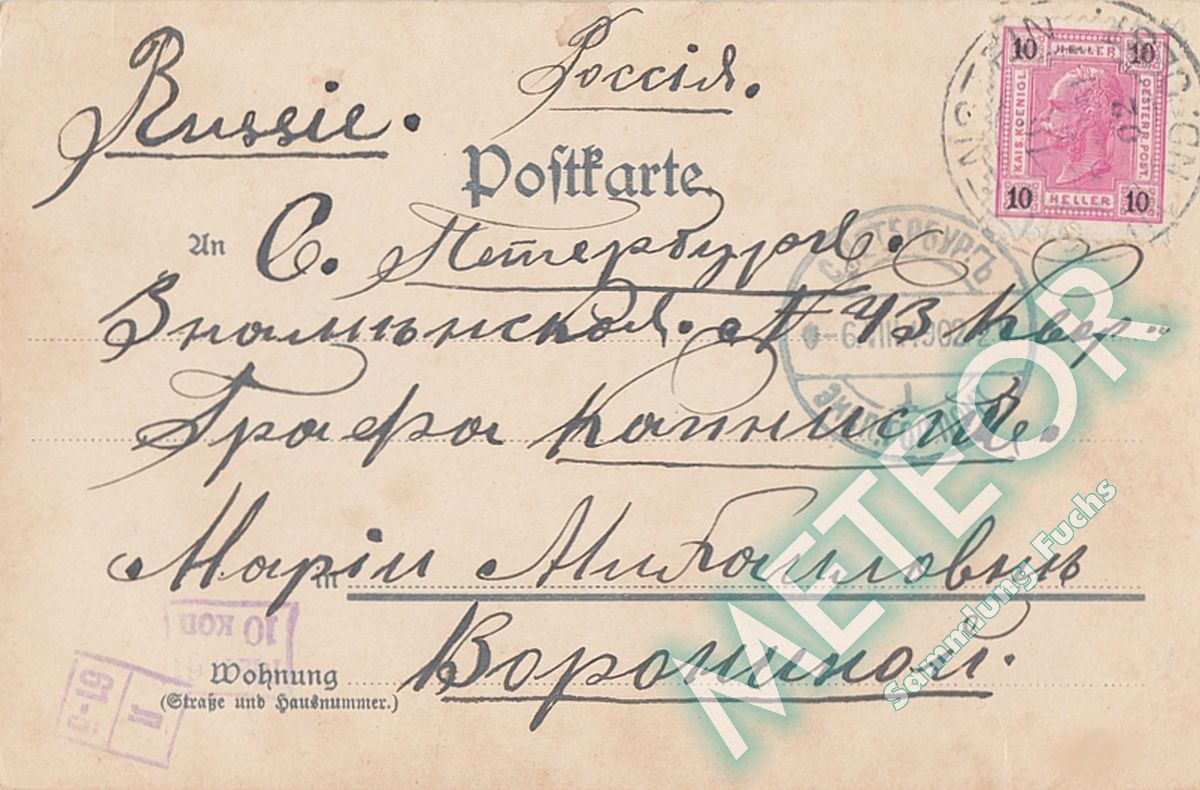 Russie. Россія.
Postkarte
An С. Петербургъ.
Знаменская. № 43 Квар
Графа Капнистъ.
Маріи Михаиловнѣ
in
Ворониной.
Wohnung
(Straße und Hausnummer.)
10 HELLER 10
KAIS. KOENIGL. OESTERR. POST.
10 HELLER 10
С.ПЕТЕРБУРГЪ
1902
10 КОП
Л
5-19
METEOR
Sammlung Fuchs